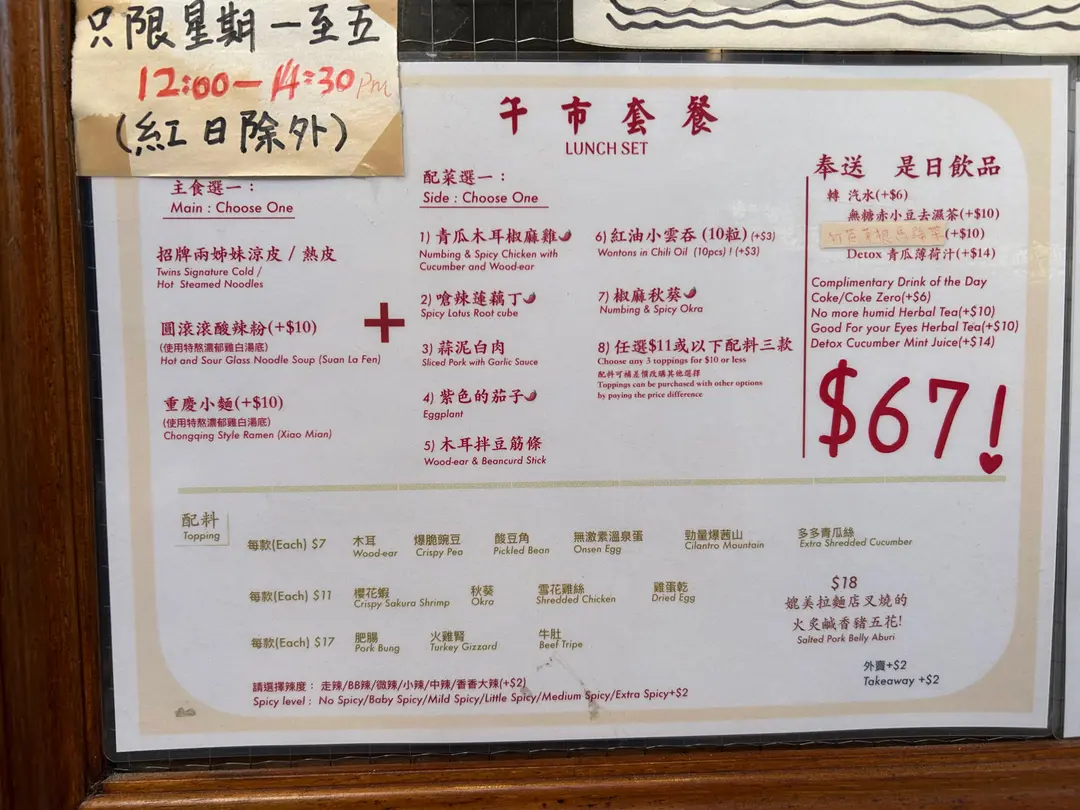 只限星期一至五
12:00-14:30pm
(紅日除外)
午市套餐
LUNCH SET
主食選一：
Main : Choose One
招牌兩姊妹涼皮 / 熱皮
Twins Signature Cold /
Hot Steamed Noodles
圓滾滾酸辣粉(+$10)
(使用特熬濃郁雞白湯底)
Hot and Sour Glass Noodle Soup (Suan La Fen)
重慶小麵(+$10)
(使用特熬濃郁雞白湯底)
Chongqing Style Ramen (Xiao Mian)
+
配菜選一：
Side : Choose One
1) 青瓜木耳椒麻雞
Numbing & Spicy Chicken with
Cucumber and Wood-ear
2) 嗆辣蓮藕丁
Spicy Lotus Root cube
3) 蒜泥白肉
Sliced Pork with Garlic Sauce
4) 紫色的茄子
Eggplant
5) 木耳拌豆筋條
Wood-ear & Beancurd Stick
6) 紅油小雲吞 (10粒) (+$3)
Wontons in Chili Oil (10pcs) ! (+$3)
7) 椒麻秋葵
Numbing & Spicy Okra
8) 任選$11或以下配料三款
Choose any 3 toppings for $10 or less
配料可補差價改購其他選擇
Toppings can be purchased with other options
by paying the price difference
奉送 是日飲品
轉 汽水(+$6)
無糖赤小豆去濕茶(+$10)
(+$10)
Detox 青瓜薄荷汁(+$14)
Complimentary Drink of the Day
Coke/Coke Zero(+$6)
No more humid Herbal Tea(+$10)
Good For your Eyes Herbal Tea(+$10)
Detox Cucumber Mint Juice(+$14)
$67!
配料
Topping
每款(Each) $7 木耳 爆脆豌豆 酸豆角 無激素溫泉蛋 勁量爆茜山 多多青瓜絲
Wood-ear Crispy Pea Pickled Bean Onsen Egg Cilantro Mountain Extra Shredded Cucumber
每款(Each) $11 櫻花蝦 秋葵 雪花雞絲 雞蛋乾
Crispy Sakura Shrimp Okra Shredded Chicken Dried Egg
每款(Each) $17 肥腸 火雞腎 牛肚
Pork Bung Turkey Gizzard Beef Tripe
$18
媲美拉麵店叉燒的
火炙鹹香豬五花!
Salted Pork Belly Aburi
外賣+$2
Takeaway +$2
請選擇辣度： 走辣/BB辣/微辣/小辣/中辣/香香大辣(+$2)
Spicy level : No Spicy/Baby Spicy/Mild Spicy/Little Spicy/Medium Spicy/Extra Spicy+$2